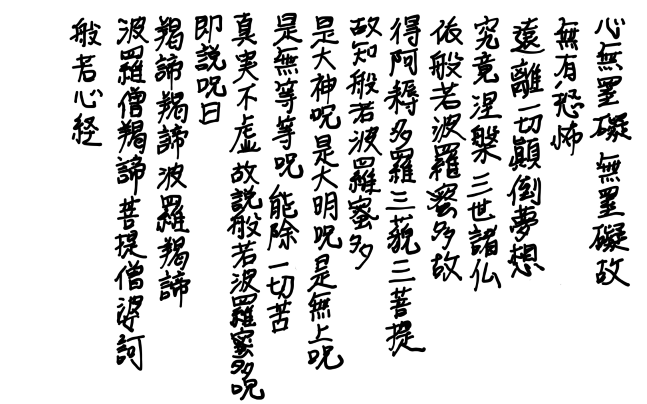 心無罣礙無罣礙故
無有恐怖
遠離一切顚倒夢想
究竟涅槃三世諸仏
依般若波羅蜜多故
得阿耨多羅三藐三菩提
故知般若波羅蜜多
是大神呪是大明呪是無上呪
是無等等呪能除一切苦
真実不虚故説般若波羅蜜多呪
即説呪曰
羯諦羯諦波羅羯諦
波羅僧羯諦菩提僧婆訶
般若心経